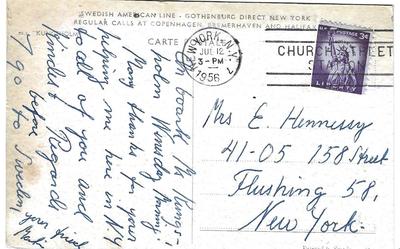 SWEDISH AMERICAN LINE - GOTHENBURG DIRECT NEW YORK
REGULAR CALLS AT COPENHAGEN, BREMERHAVEN AND HALIFAX
CARTE POSTALE
NEW YORK, N.Y.
JUL 12
3-PM
1956
CHURCH STREET
U.S. POSTAGE 3¢
LIBERTY
On board Ms Kungs-
holm Wednesday Morning!
Many thanks for your
helping me here in N.Y.
to all of you and
Kindest Regards
before
I go to Sweden, your friend
Mrs E. Hennessy
41-05 158 Street
Flushing 58,
New York.